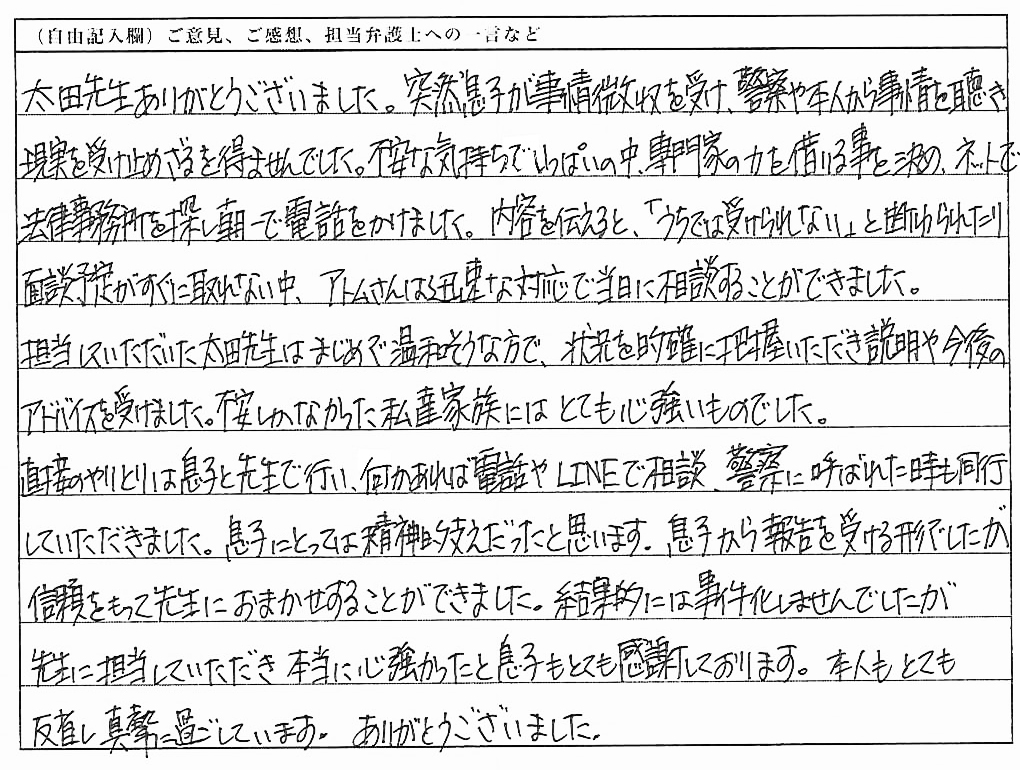 (自由記入欄) ご意見、ご感想、担当弁護士への一言など
太田先生ありがとうございました。突然息子が事情徴収を受け、警察や本人から事情を聴き
現実を受け止めざるを得ませんでした。不安な気持ちでいっぱいの中、専門家の力を借りる事を決め、ネットで
法律事務所を探し朝一で電話をかけました。内容を伝えると、「うちでは受けられない」と断わられたり
面談予定がすぐに取れない中、アトムさんは迅速な対応で当日に相談することができました。
担当していただいた太田先生はまじめで温和そうな方で、状況を的確に把握いただき説明や今後の
アドバイスを受けました。不安しかなかった私達家族にはとても心強いものでした。
直接のやりとりは息子と先生で行い、何かあれば電話やLINEで相談、警察に呼ばれた時も同行
していただきました。息子にとっては精神的支えだったと思います。息子から報告を受ける形でしたが
信頼をもって先生におまかせすることができました。結果的には事件化しませんでしたが
先生に担当していただき本当に心強かったと息子もとても感謝しております。本人もとても
反省し真摯に過ごしています。ありがとうございました。